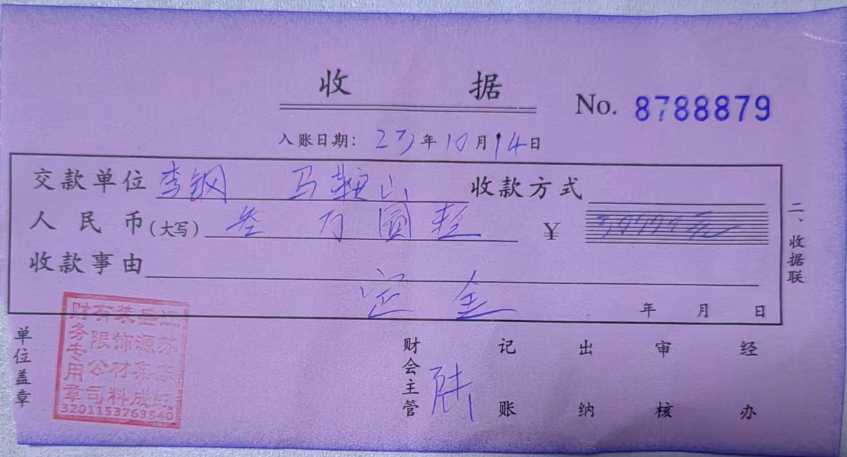 收 据
No. 8788879
入账日期: 23年10月14日
交款单位 李钢 马鞍山 收款方式
人民币(大写) 叁万圆整 ¥ 30000元
收款事由 定金
年 月 日
二、收据联
单位盖章
财会主管 陆
记账
出纳
审核
经办
财务专用章
3201153763540